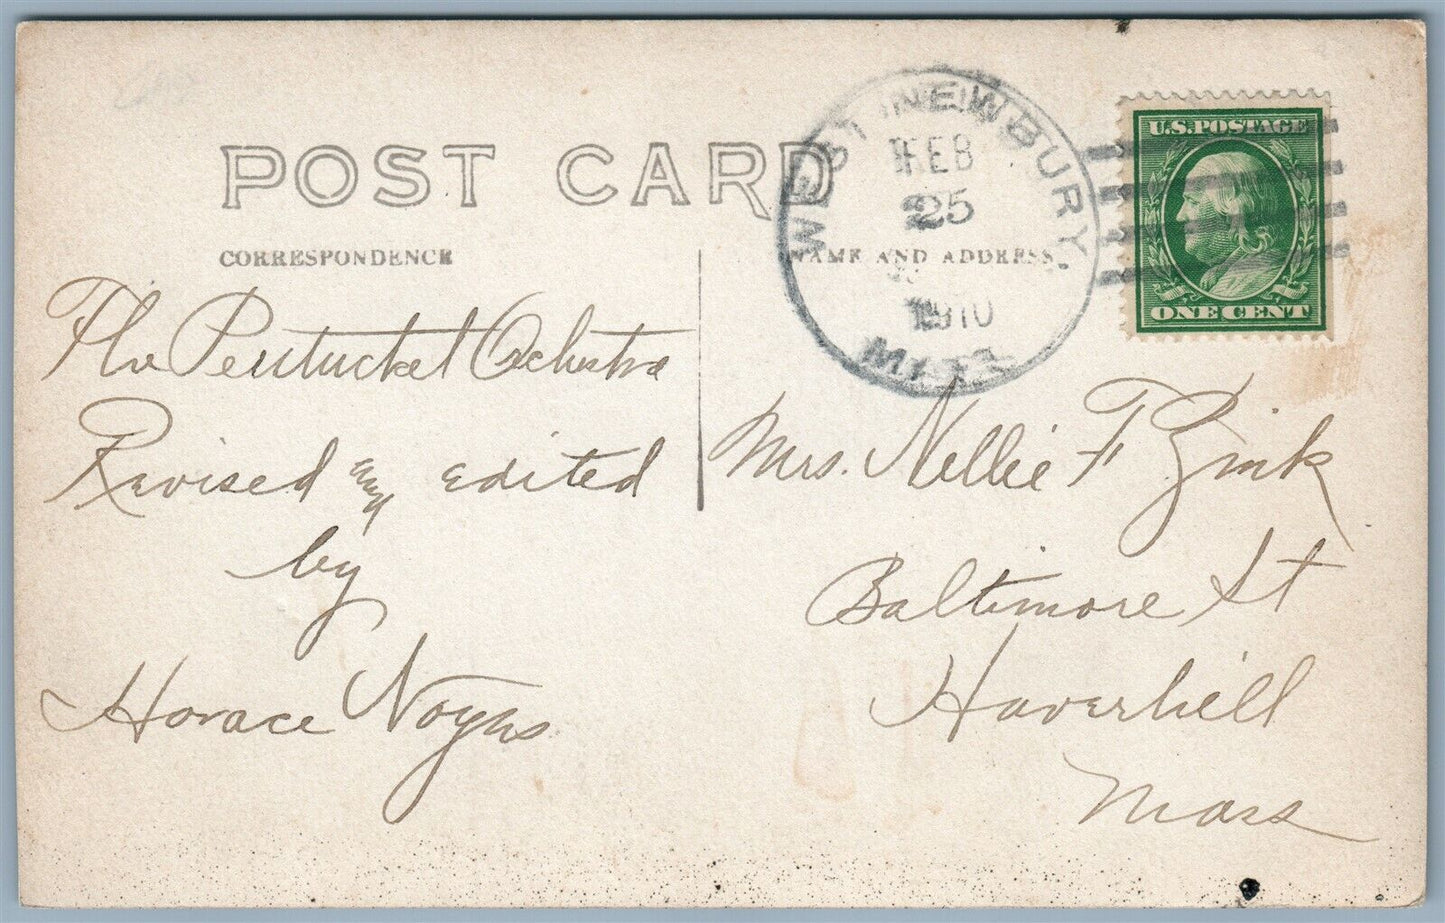 POST CARD
CORRESPONDENCE
NAME AND ADDRESS
WEST NEWBURY.
FEB
25
1910
MASS.
U.S. POSTAGE
ONE CENT
The Pentucket Ochestra
Revised and edited
by
Horace Noyes
Mrs. Nellie F Zink
Baltimore St
Haverhill
Mass